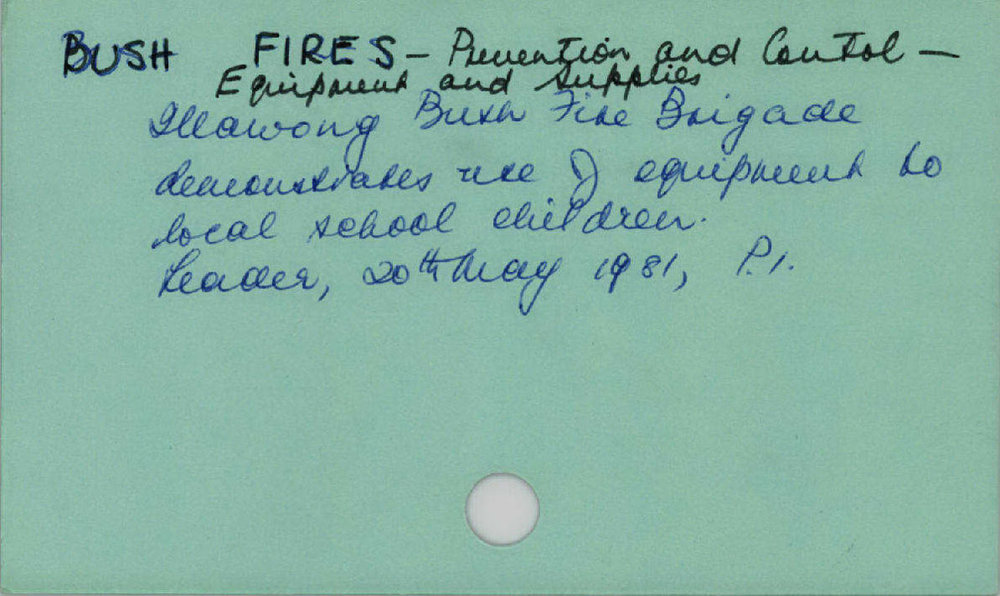 BUSH FIRES - Prevention and Control -
Equipment and Supplies
Illawong Bush Fire Brigade
demonstrates use of equipment to
local school children.
Leader, 20th May 1981, P.1.